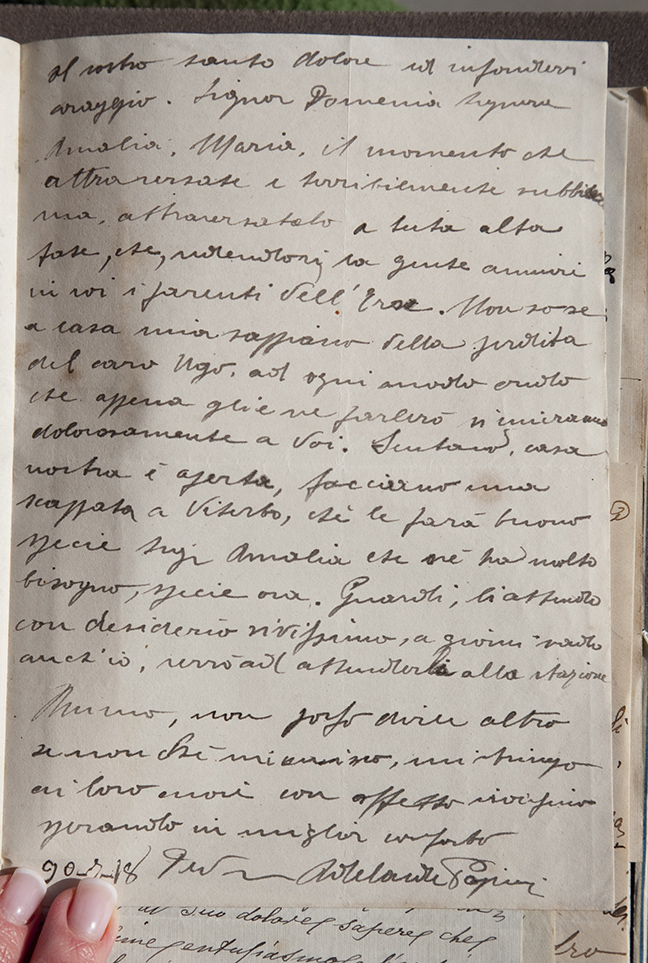 al vostro santo dolore ed infondervi
coraggio. Signor Domenico Signora
Amalia, Maria, il momento che
attraversate è terribilmente subbli
ma, attraversatelo a tuta alta
fate, che, vedendovi, la gente ammiri
in voi i parenti dell'Eroe. Non so se
a casa mia sappiano della perdita
del caro Ugo, ad ogni modo credo
che appena glie ne parlerò
dolorosamente a Voi. Sentano, casa
nostra è aperta, facciano una
scappata a Viterbo, chè le farà buono
specie Sigr Amalia che ne ha molto
bisogno, specie ora. Guardi, li attendo
con desiderio vivissimo, a giorni vado
anch'io, verrò ad attenderli alla stazione
Animo, non posso dirvi altro
se non chè mi unisco, mi stringo
ai loro cuori con affetto vivissimo
sperando in miglior conforto
18 Adelaide Papini
al suo dolore sapere che
entusiasmo